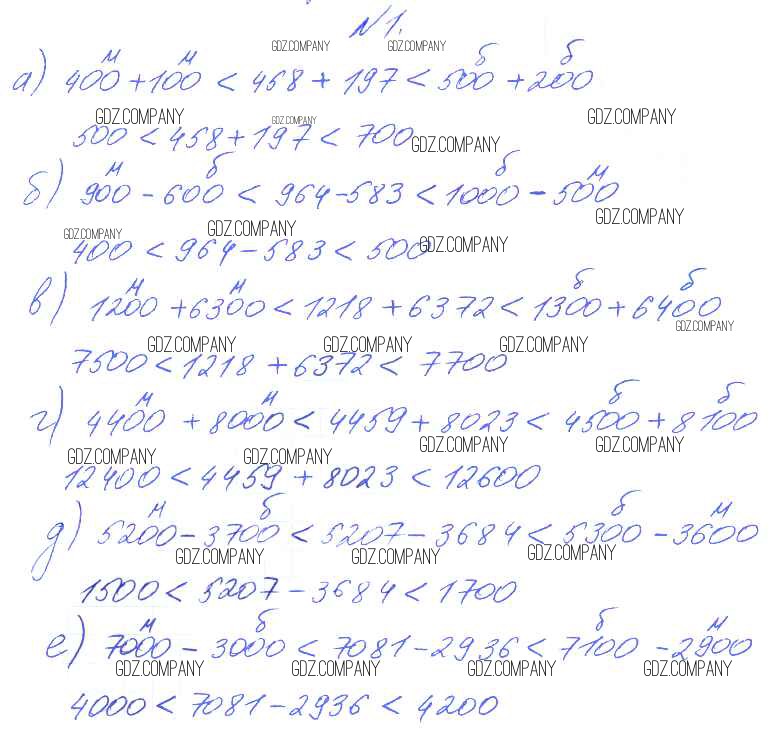 №1.
м м б б
GDZ.COMPANY GDZ.COMPANY
а) 400 + 100 < 458 + 197 < 500 + 200
GDZ.COMPANY GDZ.COMPANY
500 < 458 + 197 < 700
GDZ.COMPANY GDZ.COMPANY
м б б м
б) 900 - 600 < 964 - 583 < 1000 - 500
GDZ.COMPANY GDZ.COMPANY GDZ.COMPANY
400 < 964 - 583 < 500
GDZ.COMPANY
м м б б
в) 1200 + 6300 < 1218 + 6372 < 1300 + 6400
GDZ.COMPANY
GDZ.COMPANY GDZ.COMPANY GDZ.COMPANY
7500 < 1218 + 6372 < 7700
м м б б
г) 4400 + 8000 < 4459 + 8023 < 4500 + 8100
GDZ.COMPANY GDZ.COMPANY GDZ.COMPANY GDZ.COMPANY
12400 < 4459 + 8023 < 12600
м б б м
д) 5200 - 3700 < 5207 - 3684 < 5300 - 3600
GDZ.COMPANY GDZ.COMPANY GDZ.COMPANY
1500 < 5207 - 3684 < 1700
м б б м
е) 7000 - 3000 < 7081 - 2936 < 7100 - 2900
GDZ.COMPANY GDZ.COMPANY GDZ.COMPANY GDZ.COMPANY
4000 < 7081 - 2936 < 4200